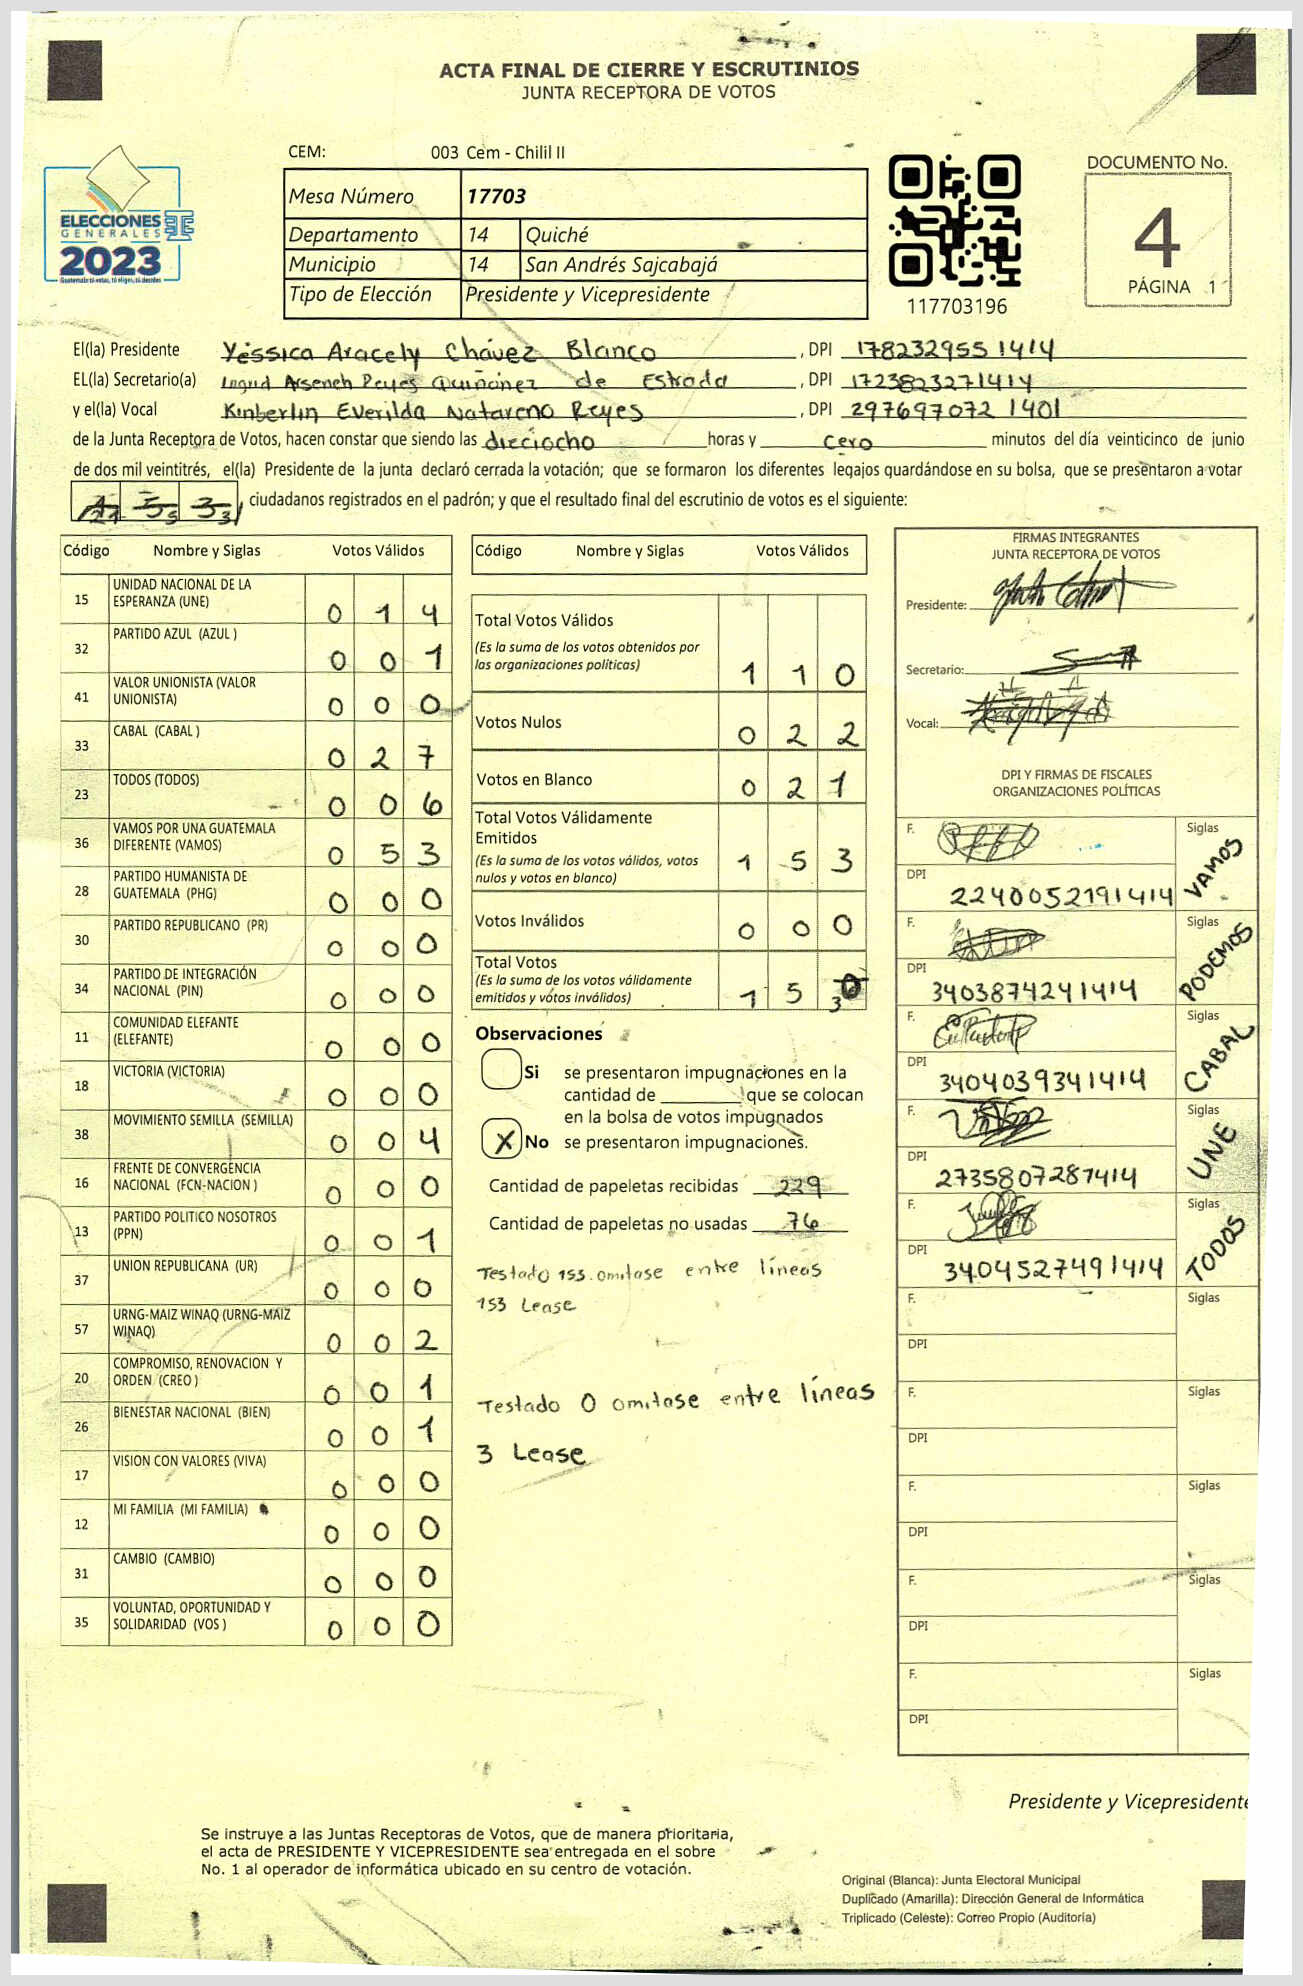 ACTA FINAL DE CIERRE Y ESCRUTINIOS
JUNTA RECEPTORA DE VOTOS
CEM: 003 Cem - Chilil II
ELECCIONES
GENERALES
2023
Guatemala tú votas, tú eliges, tú decides
Mesa Número 17703
Departamento 14 Quiché
Municipio 14 San Andrés Sajcabajá
Tipo de Elección Presidente y Vicepresidente
117703196
DOCUMENTO No.
4
PÁGINA 1
El(la) Presidente Yéssica Aracely Chávez Blanco, DPI 178232955 1414
EL(la) Secretario(a) Reyes Quiñónez de Estrada, DPI 1723823271414
y el(la) Vocal Kinberlin Everilda Natareno Reyes, DPI 297697072 1401
de la Junta Receptora de Votos, hacen constar que siendo las dieciocho horas y cero minutos del día veinticinco de junio
de dos mil veintitrés, el(la) Presidente de la junta declaró cerrada la votación; que se formaron los diferentes legajos guardándose en su bolsa, que se presentaron a votar
, ciudadanos registrados en el padrón; y que el resultado final del escrutinio de votos es el siguiente:
Código Nombre y Siglas Votos Válidos
15 UNIDAD NACIONAL DE LA ESPERANZA (UNE) 0 1 4
32 PARTIDO AZUL (AZUL ) 0 0 1
41 VALOR UNIONISTA (VALOR UNIONISTA) 0 0 0
33 CABAL (CABAL ) 0 2 7
23 TODOS (TODOS) 0 0 6
36 VAMOS POR UNA GUATEMALA DIFERENTE (VAMOS) 0 5 3
28 PARTIDO HUMANISTA DE GUATEMALA (PHG) 0 0 0
30 PARTIDO REPUBLICANO (PR) 0 0 0
34 PARTIDO DE INTEGRACIÓN NACIONAL (PIN) 0 0 0
11 COMUNIDAD ELEFANTE (ELEFANTE) 0 0 0
18 VICTORIA (VICTORIA) 0 0 0
38 MOVIMIENTO SEMILLA (SEMILLA) 0 0 4
16 FRENTE DE CONVERGENCIA NACIONAL (FCN-NACION ) 0 0 0
13 PARTIDO POLITICO NOSOTROS (PPN) 0 0 1
37 UNION REPUBLICANA (UR) 0 0 0
57 URNG-MAIZ WINAQ (URNG-MAIZ WINAQ) 0 0 2
20 COMPROMISO, RENOVACION Y ORDEN (CREO ) 0 0 1
26 BIENESTAR NACIONAL (BIEN) 0 0 1
17 VISION CON VALORES (VIVA) 0 0 0
12 MI FAMILIA (MI FAMILIA) 0 0 0
31 CAMBIO (CAMBIO) 0 0 0
35 VOLUNTAD, OPORTUNIDAD Y SOLIDARIDAD (VOS ) 0 0 0
Código Nombre y Siglas Votos Válidos
Total Votos Válidos
(Es la suma de los votos obtenidos por
las organizaciones políticas) 1 1 0
Votos Nulos 0 2 2
Votos en Blanco 0 2 1
Total Votos Válidamente
Emitidos
(Es la suma de los votos válidos, votos
nulos y votos en blanco) 1 5 3
Votos Inválidos 0 0 0
Total Votos
(Es la suma de los votos válidamente
emitidos y votos inválidos) 1 5 0 3
Observaciones
Si se presentaron impugnaciones en la
cantidad de que se colocan
en la bolsa de votos impugnados
X No se presentaron impugnaciones.
Cantidad de papeletas recibidas 229
Cantidad de papeletas no usadas 76
Testado 153. omitase entre líneas
153 Lease
Testado 0 omitase entre líneas
3 Lease
FIRMAS INTEGRANTES
JUNTA RECEPTORA DE VOTOS
Presidente:
Secretario:
Vocal:
DPI Y FIRMAS DE FISCALES
ORGANIZACIONES POLÍTICAS
F. Siglas VAMOS
DPI 2240052191414
F. Siglas PODEMOS
DPI 3403874241414
F. Siglas CABAL
DPI 3404039341414
F. Siglas UNE
DPI 2735807287414
F. Siglas TODOS
DPI 3404527491414
F. Siglas
DPI
F. Siglas
DPI
F. Siglas
DPI
F. Siglas
DPI
F. Siglas
DPI
Presidente y Vicepresidente
Se instruye a las Juntas Receptoras de Votos, que de manera prioritaria,
el acta de PRESIDENTE Y VICEPRESIDENTE sea entregada en el sobre
No. 1 al operador de informática ubicado en su centro de votación.
Original (Blanca): Junta Electoral Municipal
Duplicado (Amarilla): Dirección General de Informática
Triplicado (Celeste): Correo Propio (Auditoría)